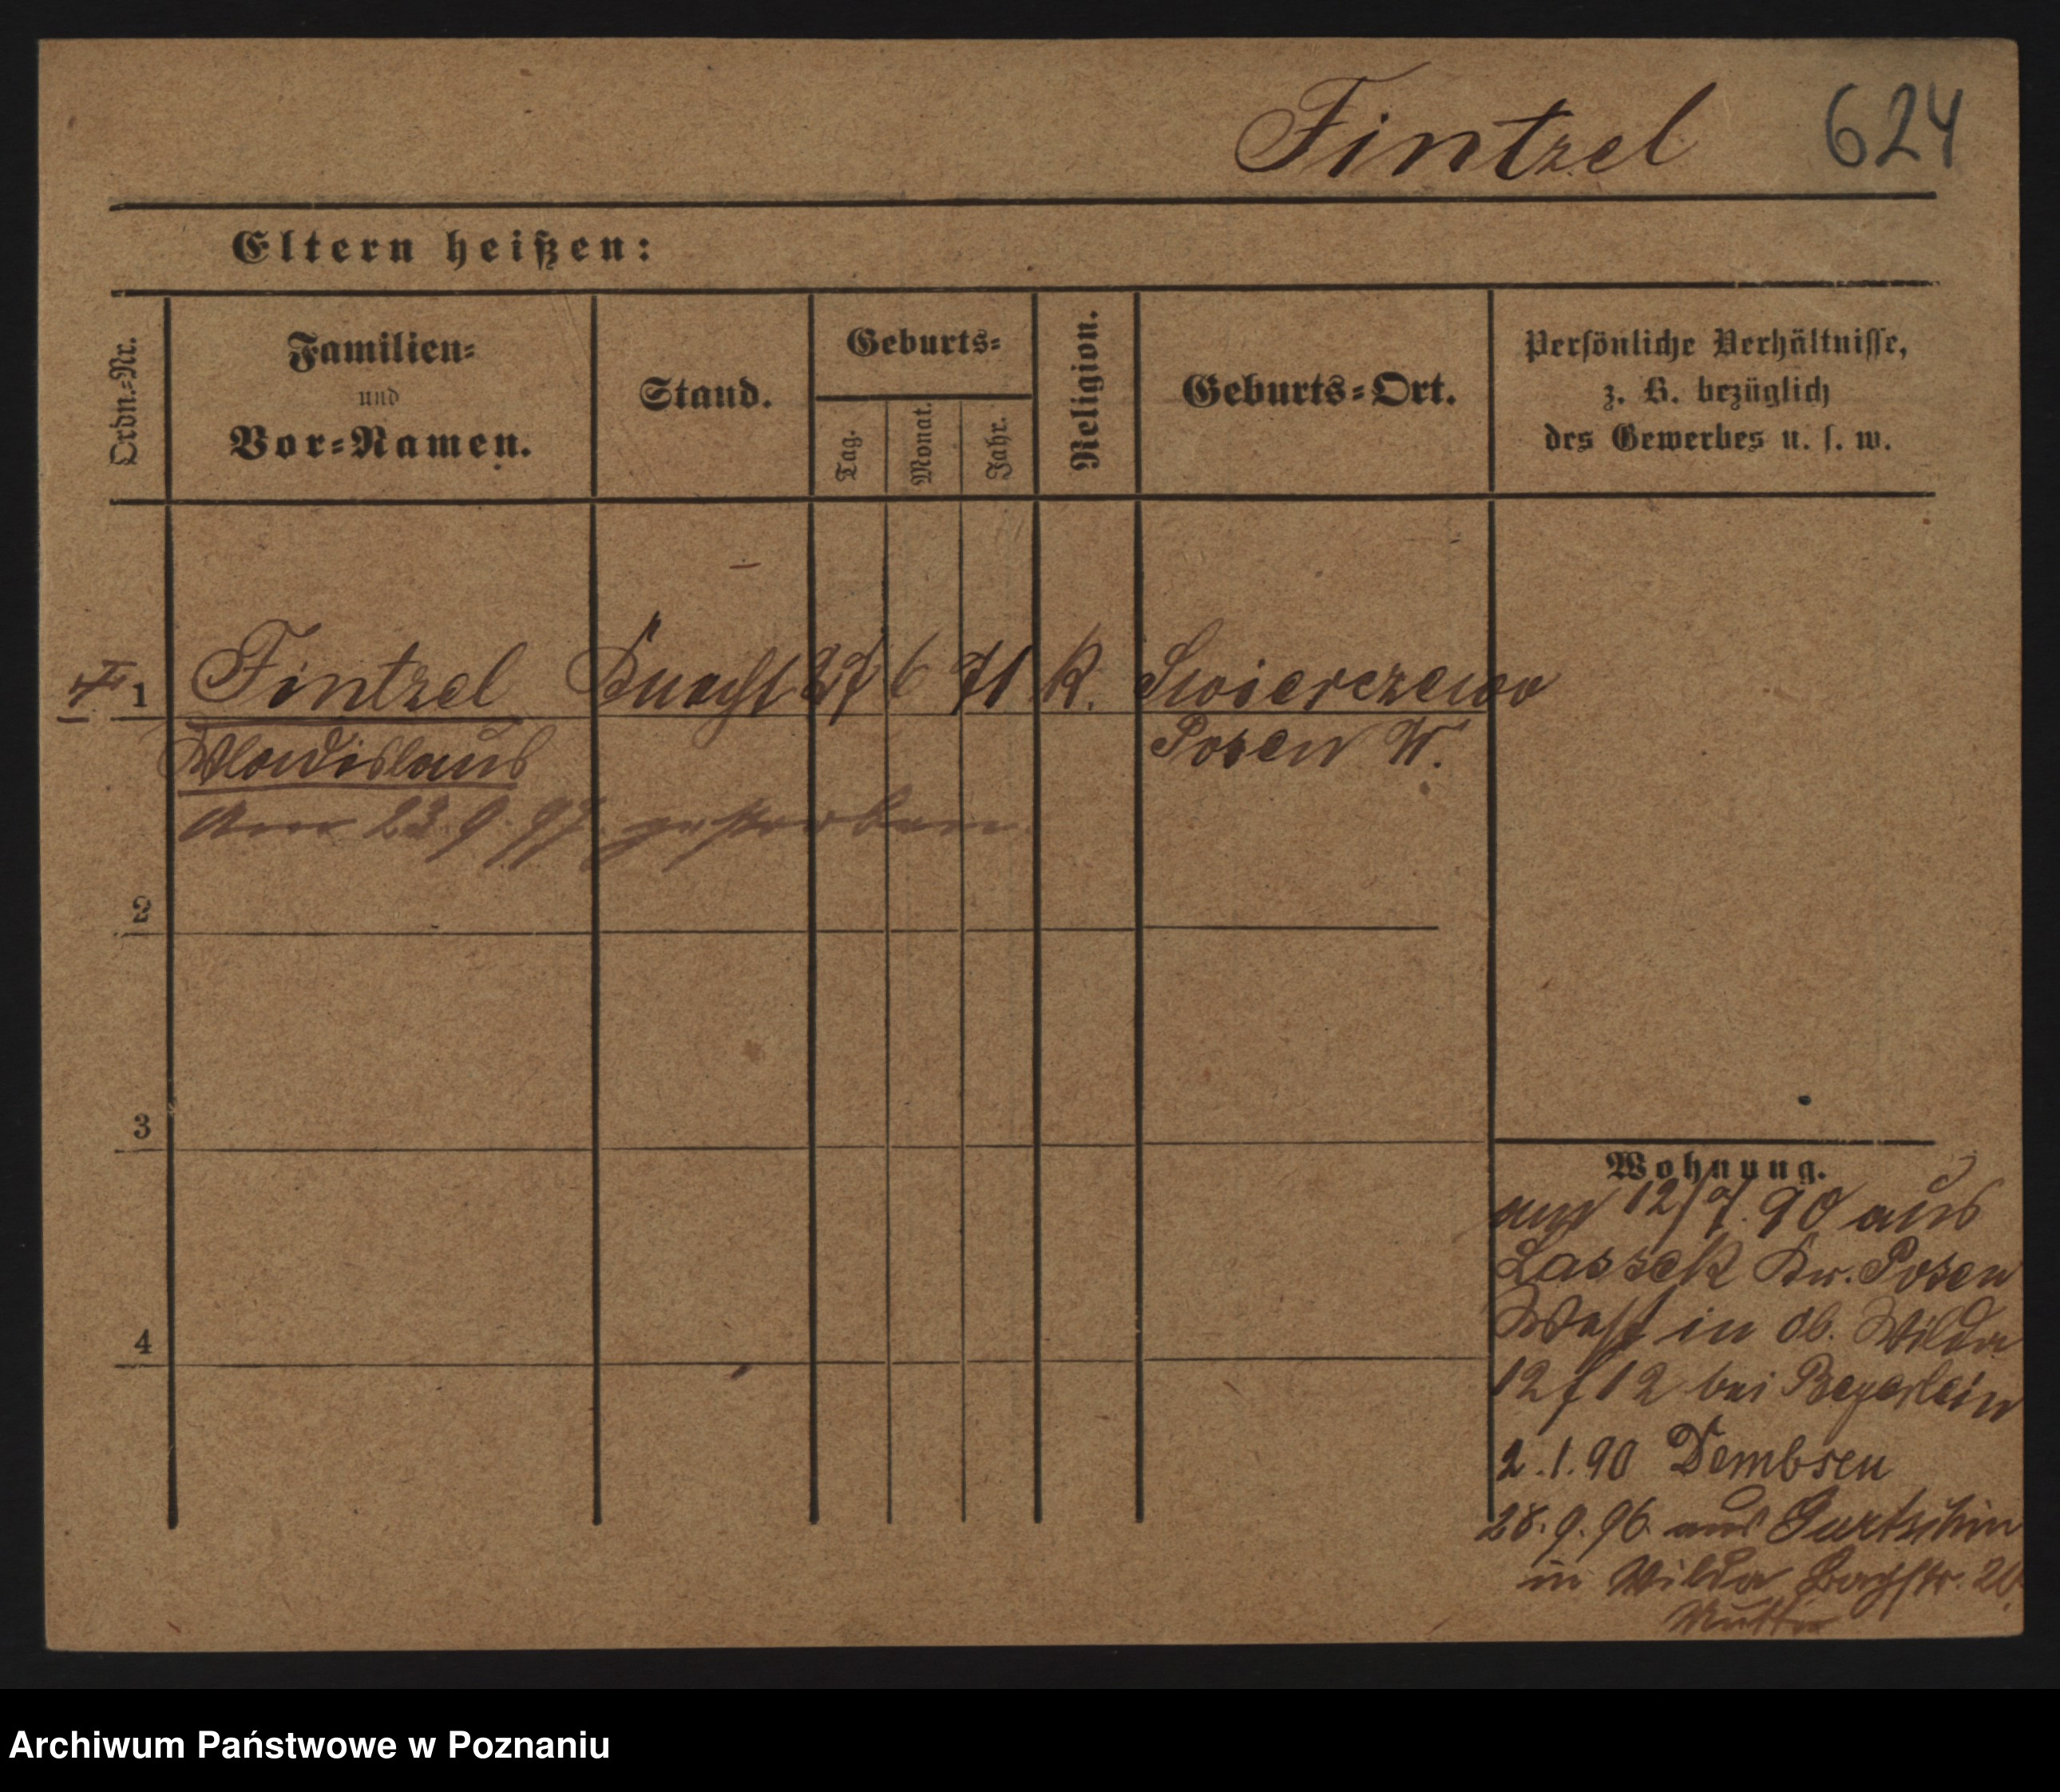 Fintzel 624
Eltern heißen:
Ordn.=Nr.
Familien=
und
Vor=Namen.
Stand.
Geburts=
Tag.
Monat.
Jahr.
Religion.
Geburts=Ort.
Persönliche Verhältnisse,
z. B. bezüglich
des Gewerbes u. s. w.
1 Fintzel Knecht 27 6 71 K. Swierczewo
Wladislaus Posen W.
Am 23.9.97. gestorben.
2
3
4
Wohnung.
am 12/ 90 aus
Lassek Kr. Posen
West in Ob. Wilda
12 12 bei Beyerlein
2.1.90 Dembsen
28.9.96. aus Gurtschin
in Wilda Bachstr. 20.
Mutter
Archiwum Państwowe w Poznaniu